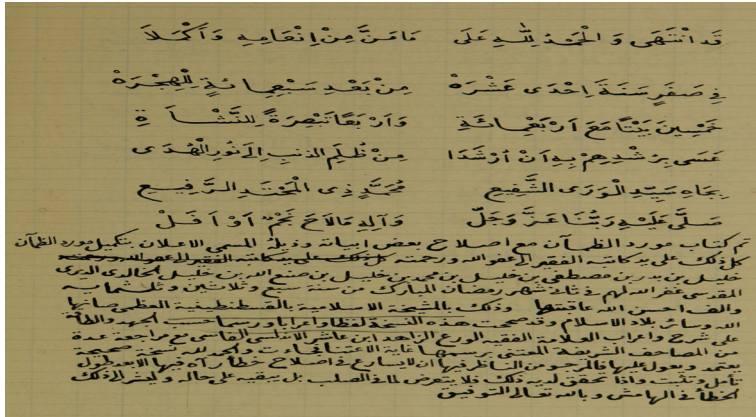 قَدِ انْتَهَى وَالْحَمْدُ لِلَّهِ عَلَى مَا مَنَّ مِنْ إِنْعَامِهِ وَأَكْمَلَا
فِي صَفَرٍ سَنَةَ إِحْدَى عَشْرَهْ مِنْ بَعْدِ سَبْعِمِائَةٍ لِلْهِجْرَهْ
خَمْسِينَ بَيْتًا مَعَ أَرْبَعِمِائَةِ وَأَرْبَعًا تَبْصِرَةً لِلنَّشْأَةِ
عَسَى بِرُشْدِهِمْ بِهِ أَنْ أُرْشَدَا مِنْ ظُلَمِ الذَّنْبِ إِلَى نُورِ الْهُدَى
بِجَاهِ سَيِّدِ الْوَرَى الشَّفِيعِ مُحَمَّدٍ ذِي الْمَحْتِدِ الرَّفِيعِ
صَلَّى عَلَيْهِ رَبُّنَا عَزَّ وَجَلَّ وَآلِهِ مَا لَاحَ نَجْمٌ أَوْ أَفَلْ
تم كتاب مورد الظمآن مع اصلاح بعض ابياته وذيله المسمى الاعلان بتكميل مورد الظمآن
كل ذلك على يد كاتبه الفقير الى عفو الله ورحمته
خليل بن بدر بن مصطفى بن خليل بن محمد بن خليل بن صنع الله بن خليل الخالدى الديرى
المقدسى غفر الله لهم فى شهر رمضان المبارك من سنة سبع وثلاثين وثلثمائة
والف احسن الله عاقبتها وذلك بالمشيخة الاسلامية بالقسطنطينية العظمى صانها
الله وسائر بلاد الاسلام وقد صححت هذه النسخة لفظا واعرابا ورسما حسب الجهد والطاقة
على شرح واعراب العلامة الفقيه الورع الزاهد ابن عاشر الاندلسى الفاسى مع مراجعة عدة
من المصاحف الشريفة المعتنى برسمها غاية الاعتناء فجاءت والحمد لله نسخة صحيحة
يعتمد ويعول عليها فالمرجو من الناظر فيها ان لا يسارع فى اصلاح خطأ رآه فيها الا بعد طول
تأمل وتثبت واذا تحقق لديه ذلك فلا يتعرض لما فى الصلب بل يبقيه على حاله ويشير الى ذلك
الخطأ فى الهامش وبالله تعالى التوفيق